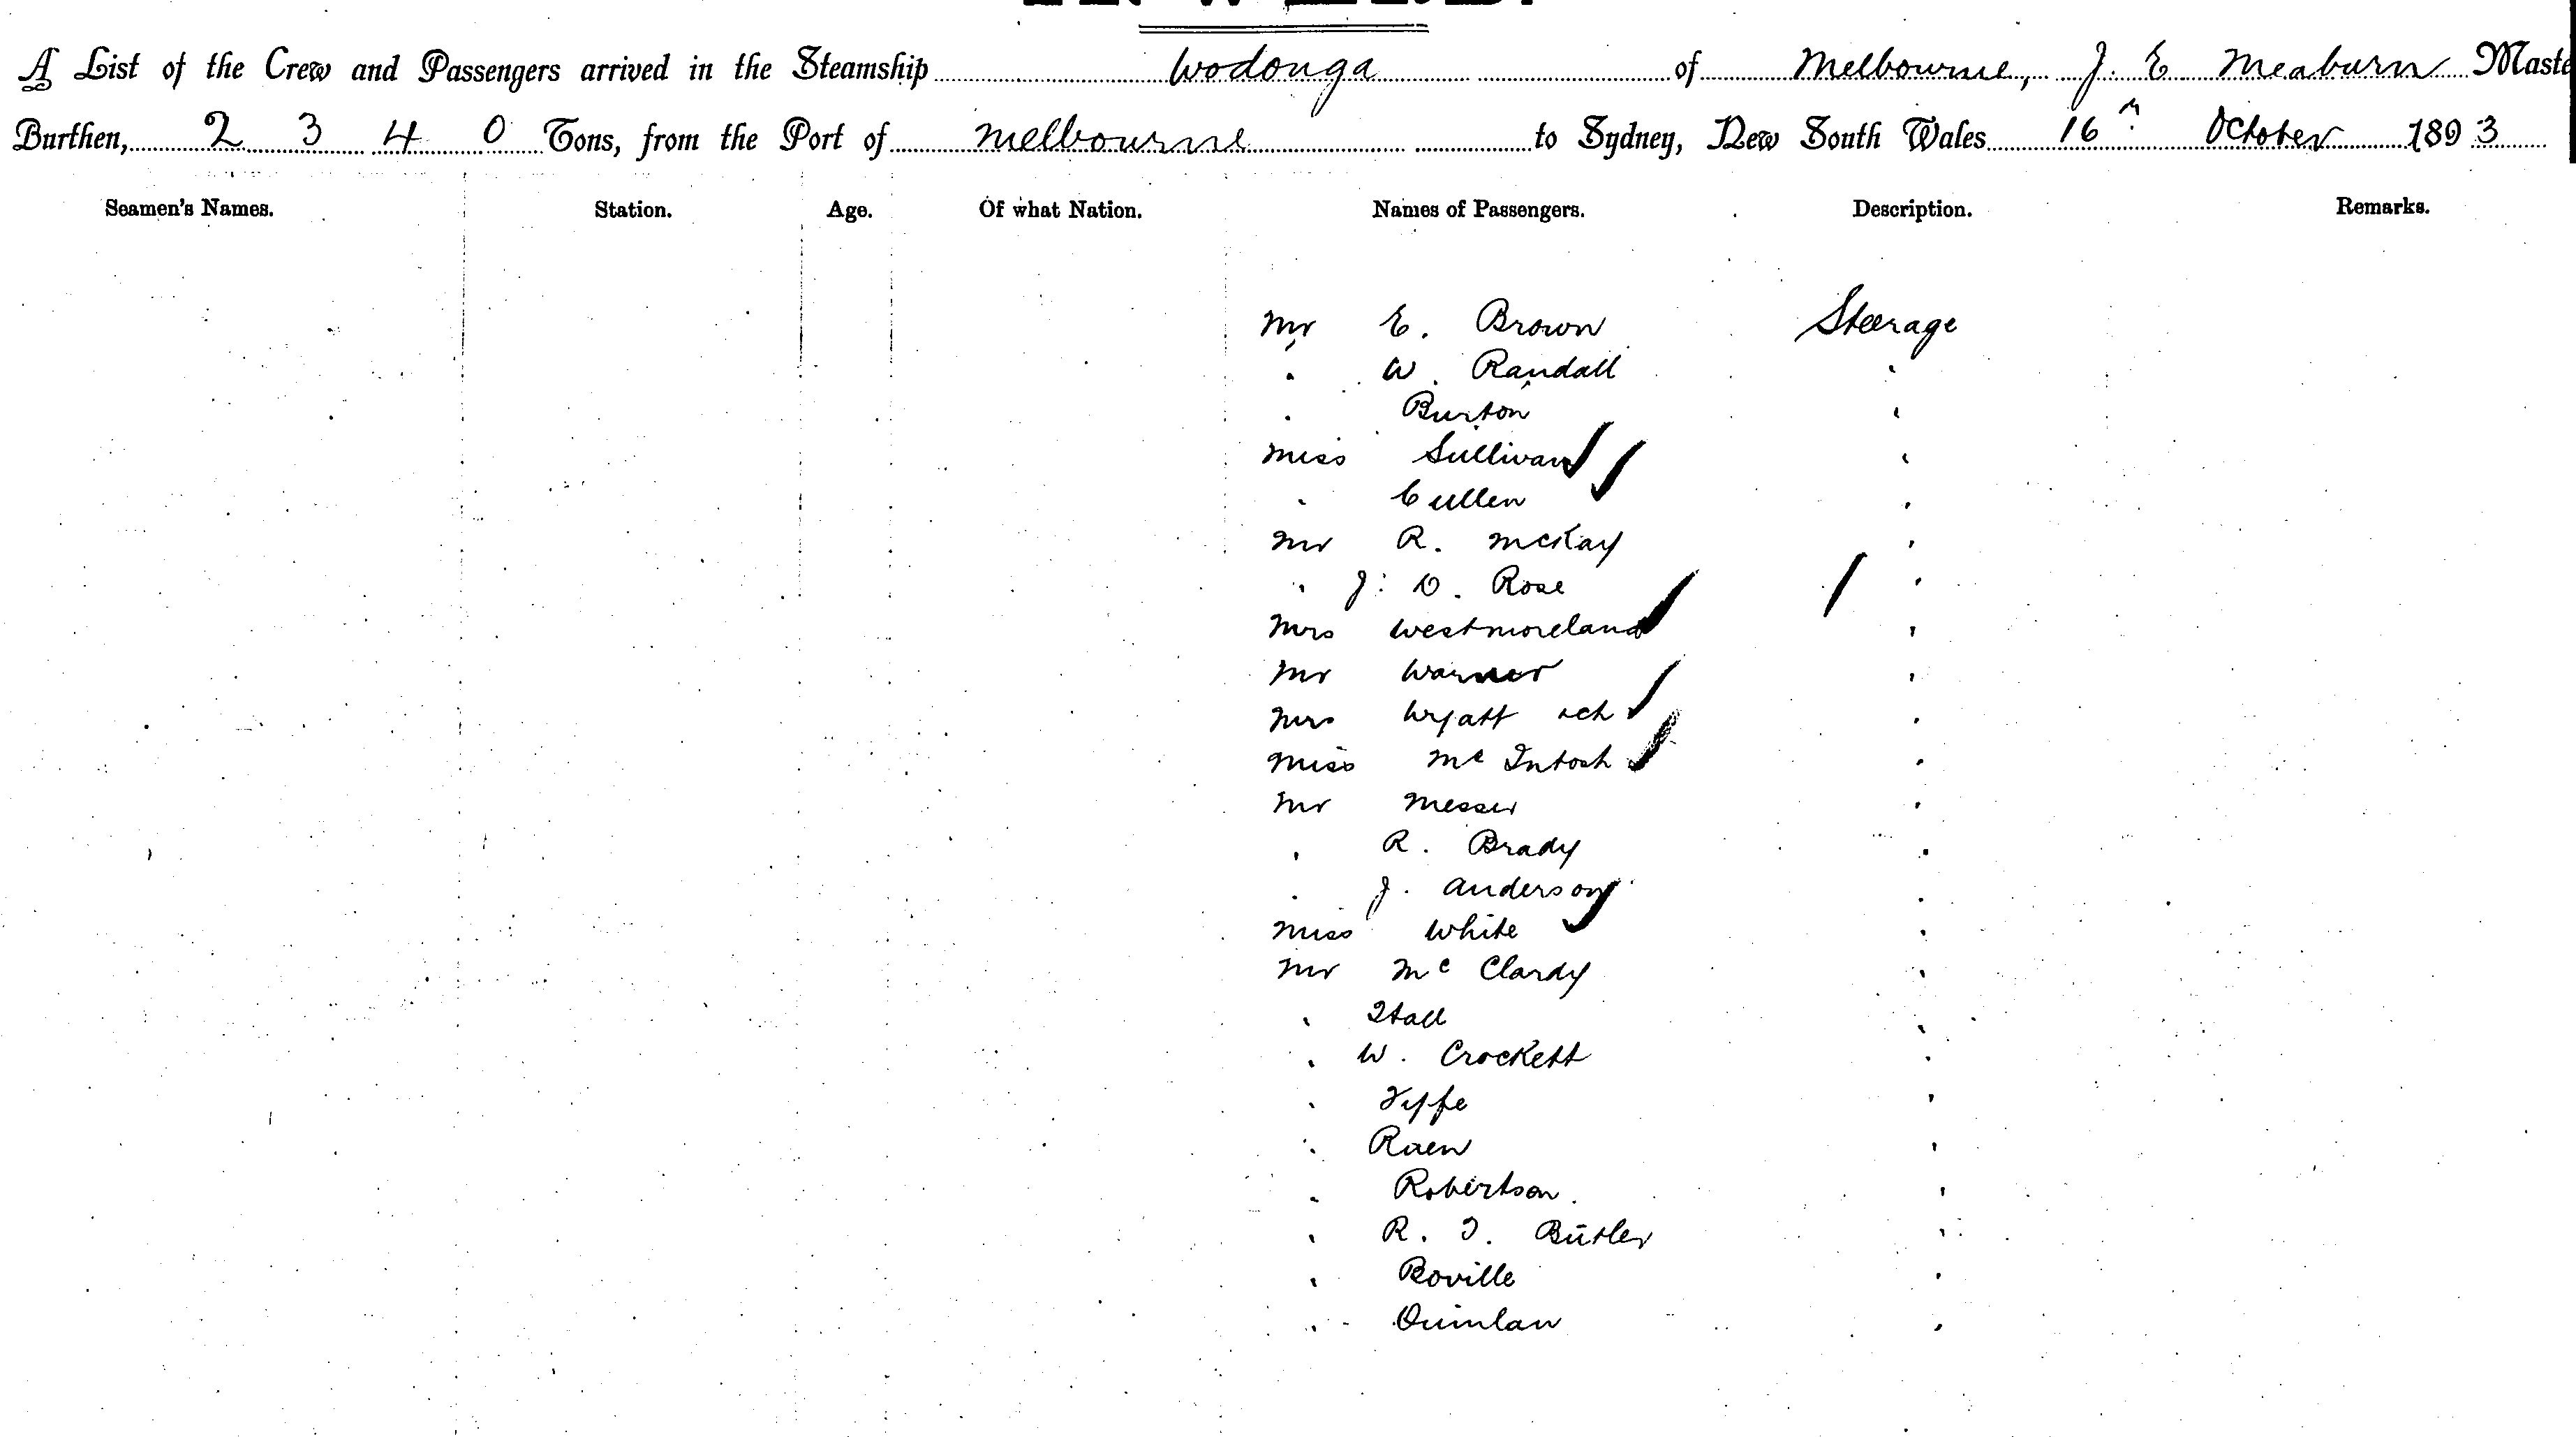 A List of the Crew and Passengers arrived in the Steamship Wodonga of Melbourne, J. E Meaburn Maste
Burthen, 2 3 4 0 Tons, from the Port of Melbourne to Sydney, New South Wales 16 October 1893
Seamen's Names. Station. Age. Of what Nation. Names of Passengers. Description. Remarks.
Mr E. Brown Steerage
" W. Randall "
" Burton "
Miss Sullivan "
" Cullen "
Mr R. McKay "
" J. D. Rose "
Mrs Westmoreland "
Mr Warner "
Mrs Wyatt "
Miss Mc Intosh "
Mr Messer "
" R. Brady "
" J. Anderson "
Miss White "
Mr Mc Clardy "
" Hall "
" W. Crockett "
" "
" "
" Robertson "
" R. Butler "
" Boville "
" Quinlan "